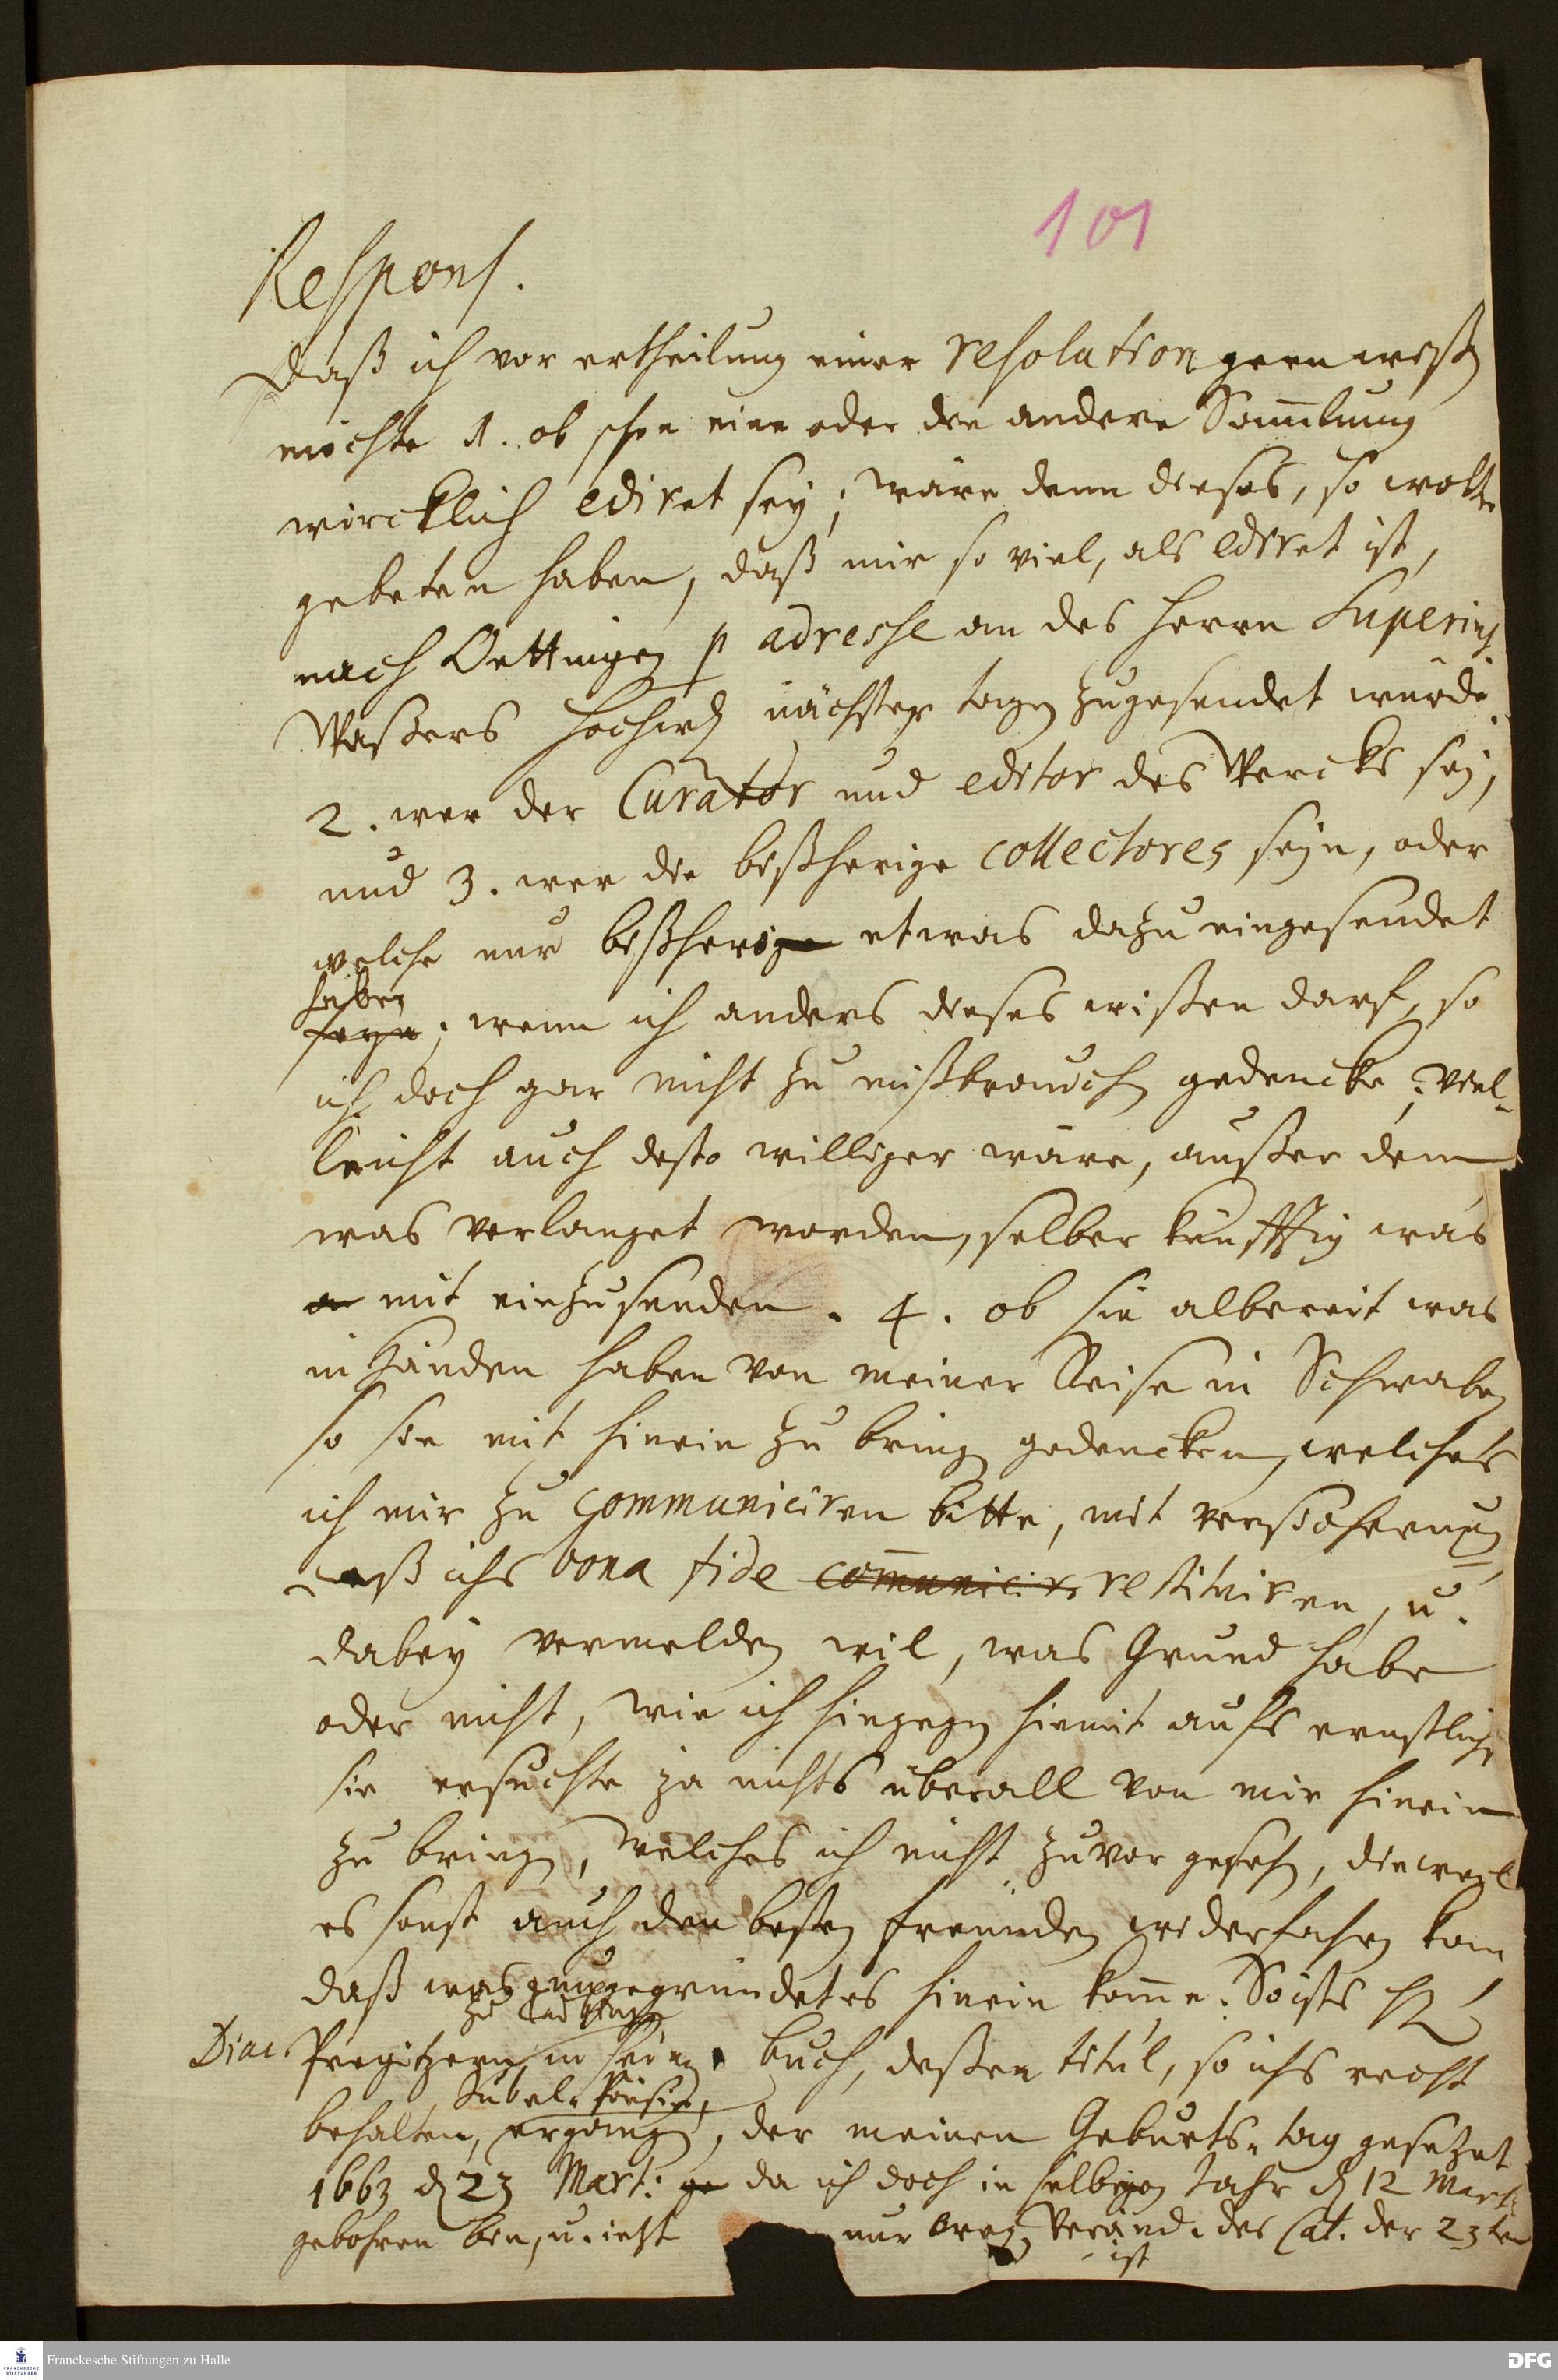 101
Respons.
Daß ich vor ertheilung einer resolution gern wißen
möchte 1. ob schon eine oder die andere Sam̄lung
wircklich ediret sey; wäre denn dieses, so wolte
gebeten haben, daß mir so viel, als ediret ist,
nach Oettingen p adresse an des Herrn Superint.
Waßers Hochw. nächster tagen zugesendet würde.
2. wer der Curator und editor des Wercks sey,
und 3. wer die bißherige collectores seyn, oder
welche nur bißherige etwas dazu eingesendet
haben
seyn; wenn ich anders dieses wißen darf, so
ich doch gar nicht zu mißbrauchen gedencke; viel-
leicht auch desto williger wäre, außer dem
was verlanget worden, selber künfftig was
mit einzusenden. 4. ob sie albereit was
in Händen haben von meiner Reise in Schwaben
so sie mit hinein zu bringen gedencken, welches
ich mir zu communiciren bitte, mit versicherung
daß ichs bona fide com̄unicir restituiren, u.
dabey vermelden wil, was Grund habe
oder nicht, wie ich hingegen hiemit aufs ernstlichste
sie ersuchte ja nichts überall von mir hinein
zu bringen, welches ich nicht zuvor gesehen, dieweil
es sonst auch den besten freunden wiederfahren kan
daß was ungegründetes hinein kom̄e. So ists H.
zu Tübingen
Diac. Pregitzern, in seinem buch, deßen titul, so ichs recht
Jubel-Poësie,
behalten, ergangen, der meinen Geburts-tag gesetzet
1663 d 23 Mart: da ich doch in selbigen Jahr d 12 Mart.
gebohren bin, u. ietzt nur wegen Veränd. des Cal. der 23te
ist
Franckesche Stiftungen zu Halle
DFG